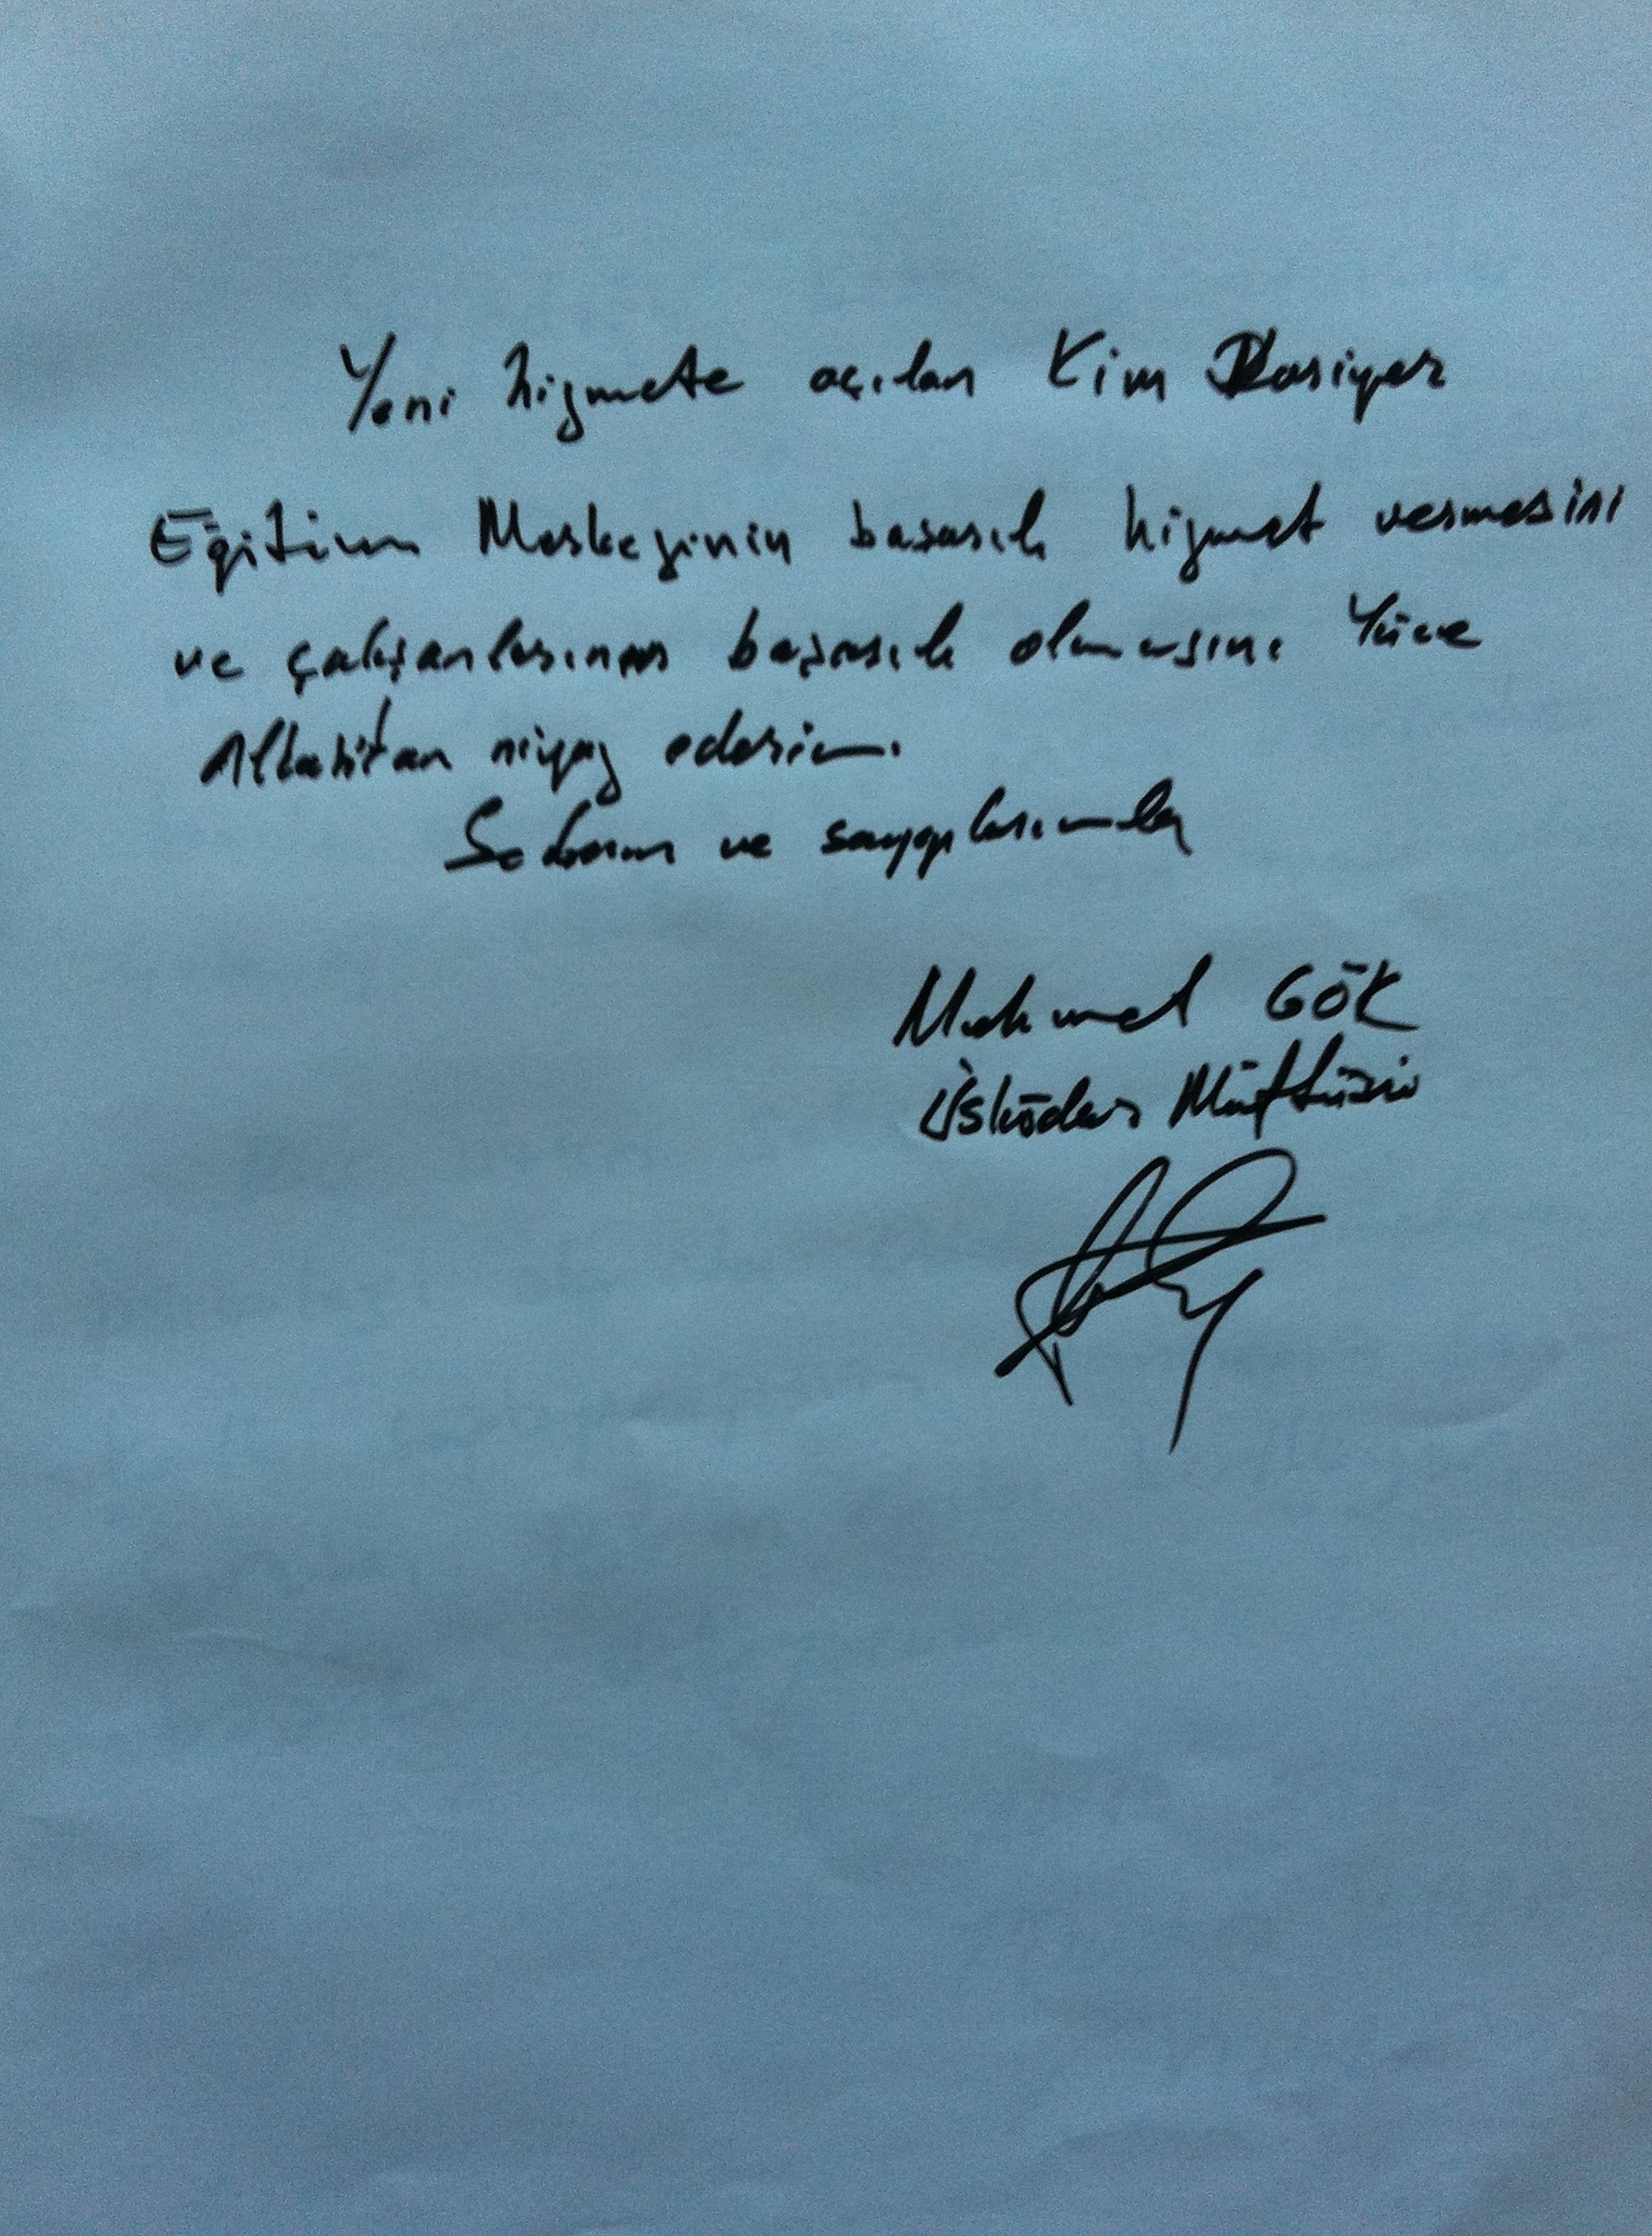 Yeni hizmete açılan Kim
Eğitim Merkezinin başarılı hizmet vermesini
ve çalışanlarının başarılı olmasını Yüce
Allah'tan niyaz ederim.
Selam ve saygılarımla
Mehmet GÖK
Üsküdar Müftüsü